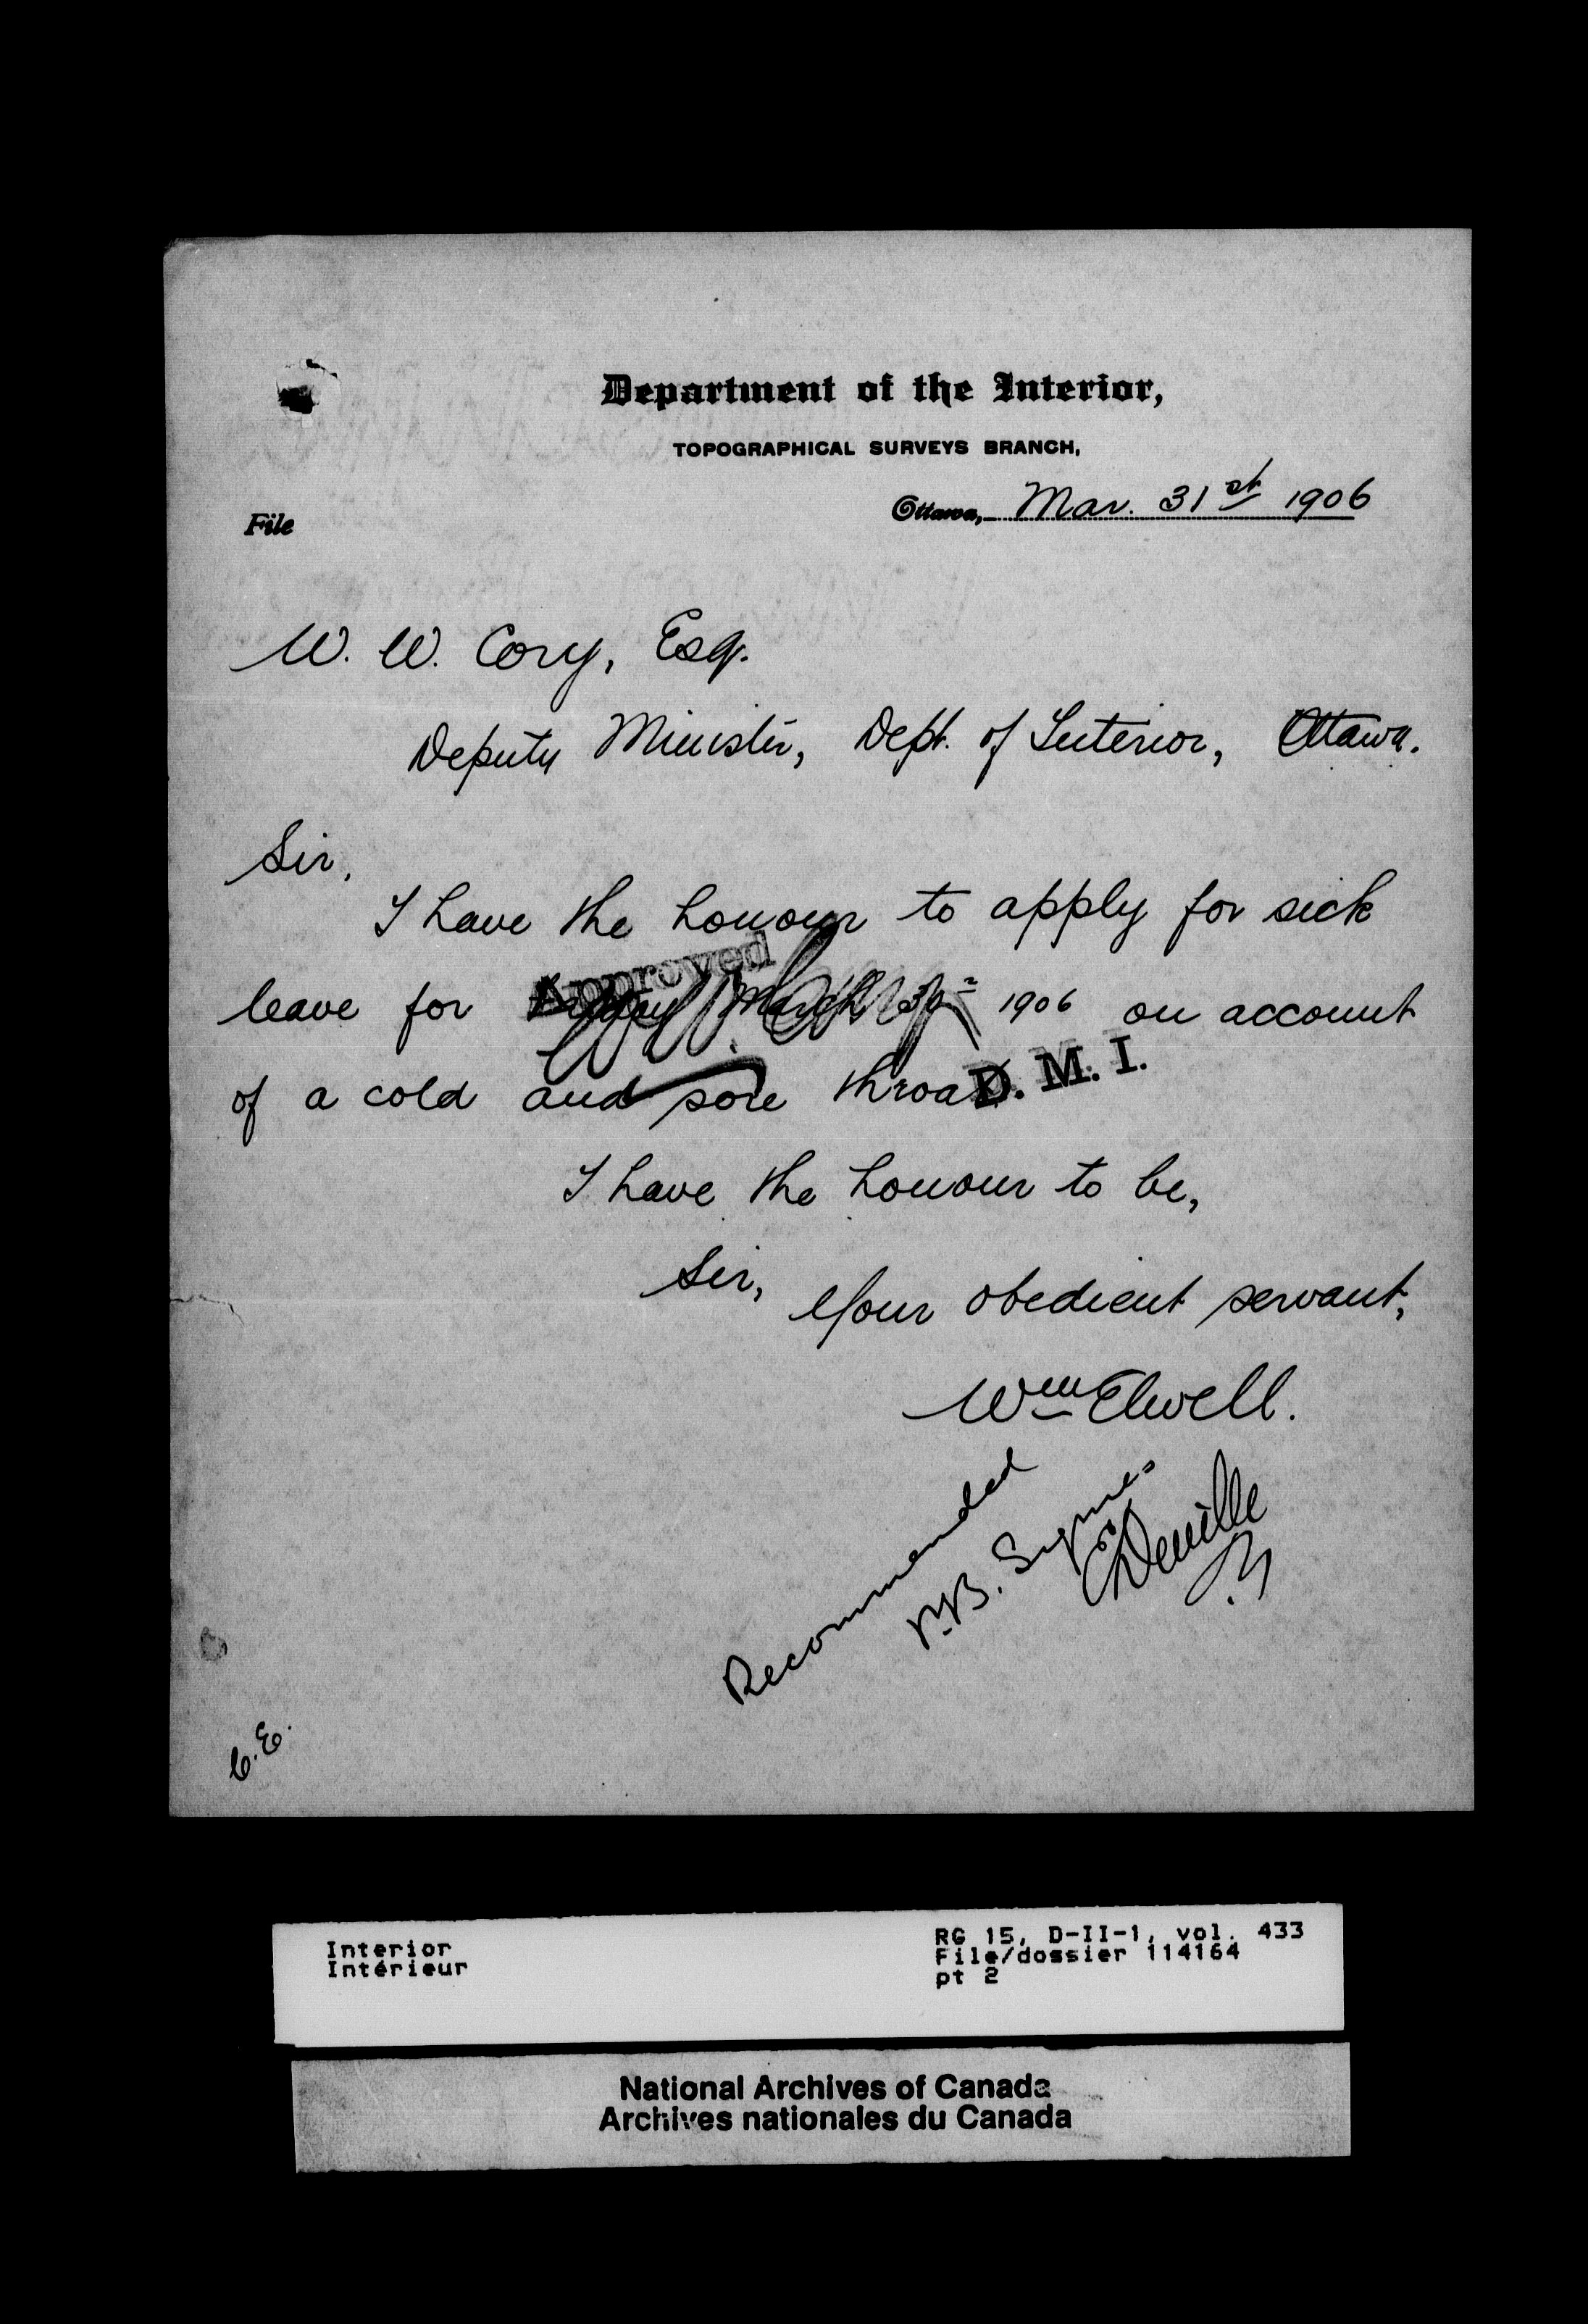 Department of the Interior,
TOPOGRAPHICAL SURVEYS BRANCH,
Ottawa, Mar. 31st 1906
File
W. W. Cory, Esq.
Deputy Minister, Dept. of Interior, Ottawa.
Sir,
I have the honour to apply for sick
Approved
leave for Friday March 30th 1906 on account
of a cold and sore throat.
D. M. I.
I have the honour to be,
Sir,
Your obedient servant,
Wm Elwell.
Recommended
P.B. Symes
E Deville
C.E.
Interior
Intérieur
RG 15, D-II-1, vol. 433
File/dossier 114164
pt 2
National Archives of Canada
Archives nationales du Canada